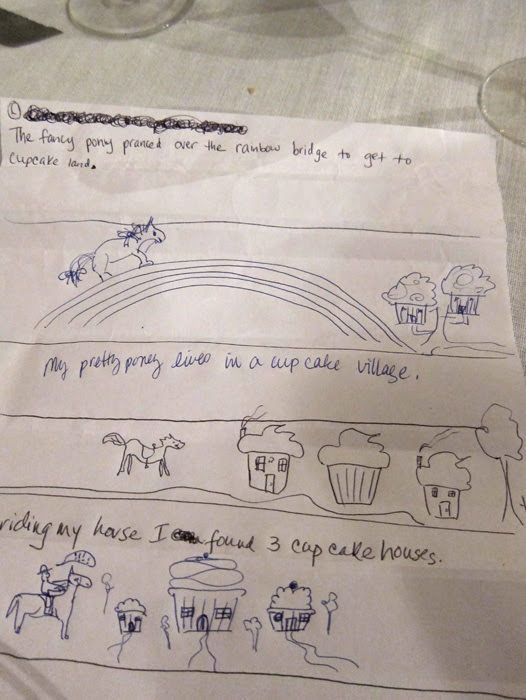 The fancy pony pranced over the rainbow bridge to get to
cupcake land.
My pretty poney lives in a cup cake village.
riding my horse I found 3 cup cake houses.